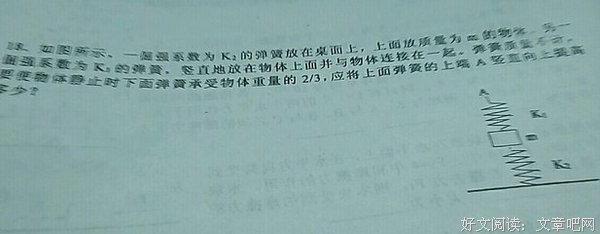 18. 如图所示,一倔强系数为K₂的弹簧放在桌面上,上面放质量为m的物体,另一
倔强系数为K₁的弹簧,竖直地放在物体上面并与物体连接在一起。弹簧质量不计,
要使物体静止时下面弹簧承受物体重量的2/3,应将上面弹簧的上端A竖直向上提高
多少?
A
K₁
m
K₂
好文阅读:文章吧网